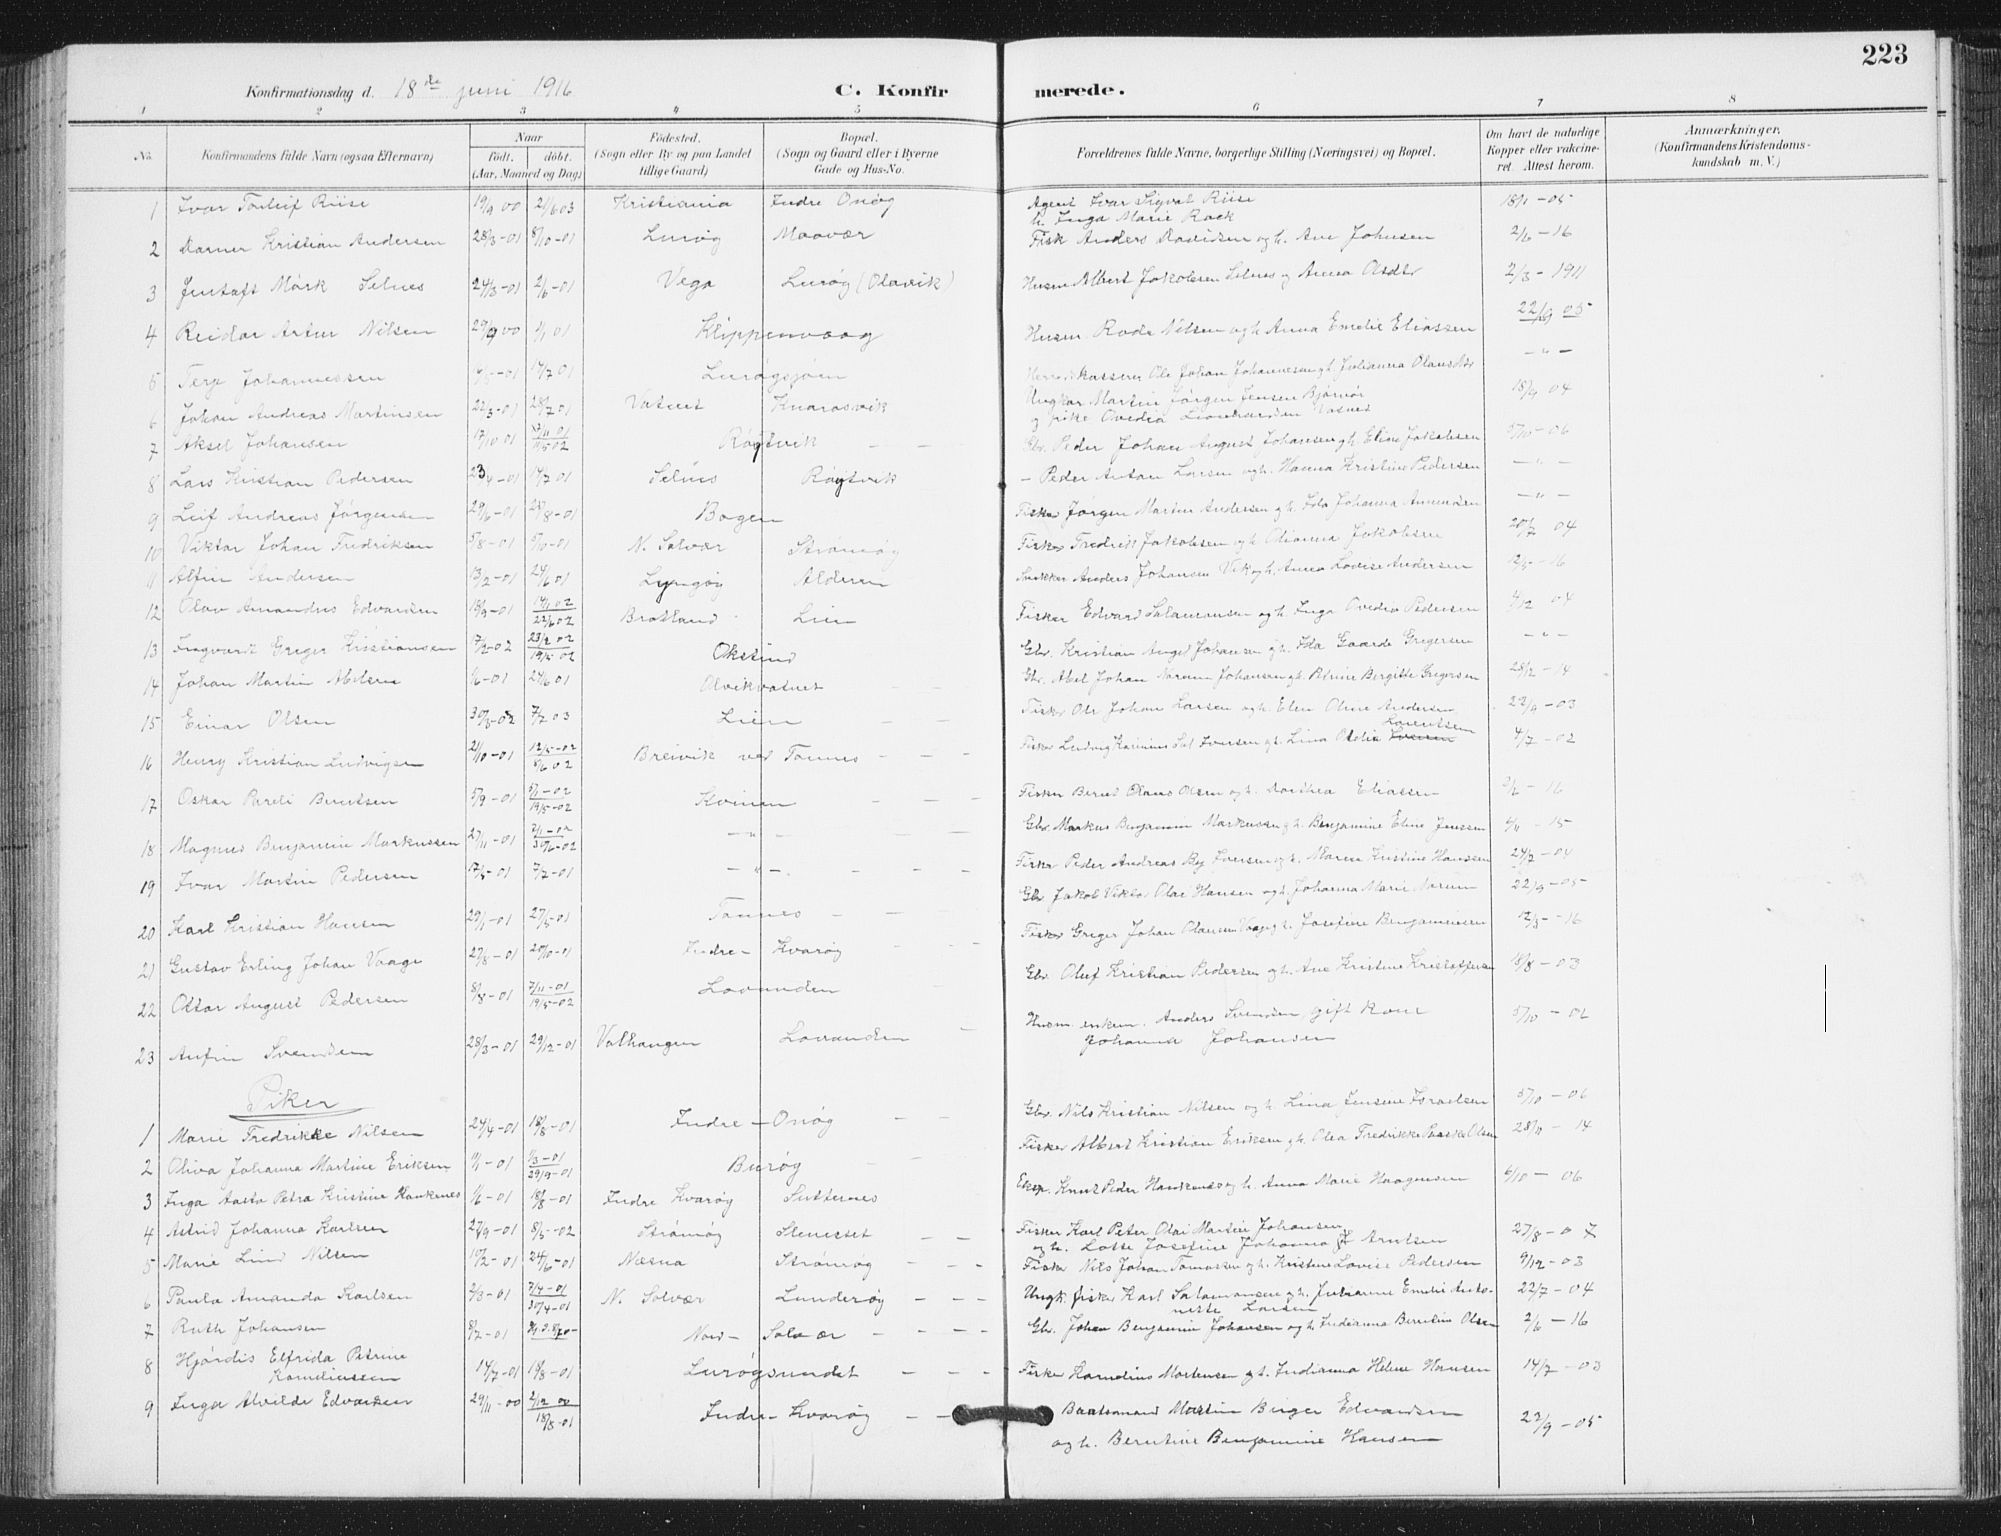 223
Konfirmationsdag d. 18de juni 1916 C. Konfirmerede.
1 2 3 4 5 6 7 8
No. Konfirmandens fulde Navn (ogsaa Efternavn) Naar födt. döbt. (Aar, Maaned og Dag) Födested. (Sogn eller By og paa Landet tillige Gaard) Bopæl. (Sogn og Gaard eller i Byerne Gade og Hus-No. Forældrenes fulde Navne, borgerlige Stilling (Næringsvei) og Bopæl. Om havt de naturlige Kopper eller vakcineret. Attest herom. Anmærkninger. (Konfirmandens Kristendomskundskab m. V.)
1 Ivar Torleif Riise 19/9 00 2/6 03 Kristiania Indre Onöy Agent Ivar Sigvat Riise
h. Inga Marie Rock 18/1 - 05
2 Kristian Andersen 28/3-01 8/10-01 Luröy Maavær Fisk Anders Davidsen og h. Ane Johnsen 2/6 - 16
3 Mörk Selnes 24/3-01 2/6-01 Vega Luröy (Olavik) Husm Albert Jakobsen Selnes og Anna Olsdtr 2/3 - 1911
4 Reidar Artur Nilsen 29/9 00 1/1 01 Klippenvaag Husm Nilsen og h. Anna Emelie Eliassen 22/9 05
5 Terje Johannessen 17/7 01 Luröysjöen Ole Johan Johannesen og h. Julianna - " -
6 Johan Andreas Martinsen 22/3-01 28/7 01 Vatnet Kvarøsvik Ungkar Martin Jörgen Jensen Bjørnör
og pike Ovedia Vatnet 18/9 04
7 Aksel Johansen 17/10 01 17/11 01 Röytvik - - Gbr. Peder Johan August Johansen og h. Eline Jakobsen 5/10 - 06
8 Lars Kristian Pedersen 23/4-01 14/7 01 Selnes Röytvik - Peder Anton Larsen og h. Hanna Kristine Pedersen - " -
9 Leif Andreas Jörgensen 29/6-01 Bogen Fisker Jörgen Martin Andersen og h. Ida Johanna Amundsen - " -
10 Viktor Johan Fredriksen 5/8-01 5/10-01 N. Solvær Strömöy Fisker Fredrik Jakobsen og h. Olianna Jakobsen 20/7 04
11 Alfin Andersen 13/2-01 24/6 01 Lyngöy Alderen Snikker Anders Johansen Vik og h. Anna Lovise Andersen 12/5 - 16
12 Olav Amandus Edvardsen 18/9-01 14/1 02 22/6 02 Bratland Lien Fisker Edvard Salamonsen og h. Inga Ovedia Pedersen 4/12 04
13 Ingvardt Greger Kristiansen 17/2-02 23/2 02 19/5 02 Okstind Gbr. Kristian Johansen og h. Ida Gaarde Gregersen - " -
14 Johan Martin Abelsen 1/6-01 24/6 01 Olvikvatnet - - Gbr. Abel Johan Narum Johansen og h. Bergitte Gregersen 28/12 - 14
15 Einar Olsen 30/3-02 7/7 03 Lien - - Fisker Ole Johan Larsen og h. Elen Oline Andersen 22/9 - 03
16 Henry Kristian Ludvigsen 21/10-01 12/5-02 8/6 02 Breivik ved Tonnes - - - Fisker Ludvig Iversen og h. Lina Otelia Laurettsen 4/7 - 02
17 Oskar Bentsen 5/9-01 5/1-02 19/5-02 Kvinen - - - Fisker Bernt Olaus Olsen og h. Dorthea Eliassen 2/6 - 16
18 Magnus Benjamin Markussen 27/11-01 7/1-02 30/6-02 - " - - - Gbr. Markus Benjamin Markussen og h. Benjamine Eline Jenssen 4/11 - 15
19 Ivar Martin Pedersen 17/5-01 7/7-01 - " - - - - Fisker Peder Andreas By Iversen og h. Maren Kristine Hanssen 24/7 - 04
20 Karl Kristian Hansen 29/1-01 27/5-01 Tonnes - - Gbr Jakob Viktor Olai Hansen og h. Johanna Marie Narum 22/9 - 05
21 Gustav Erling Johan Vaage 27/8-01 20/10-01 Indre - Kvaröy - - - Fisker Greger Johan Olausen Vaage og h. Josefine Benjaminsen 12/5 - 16
22 Ottar August Pedersen 8/8-01 7/11-01 19/5-02 Lovunden Gbr. Oluf Kristian Pedersen og h. Ane Kristine Kristoffersen 18/8 - 03
23 Anfin Svendsen 28/3-01 29/12-01 Valhaugen Lovunden - Husm. enkem. Anders Svendsen, gift kone
Johanna Johansen 5/10 - 02
Piker
1 Marie Fredrikke Nilsen 24/4-01 18/8-01 Indre - Onöy - - Gbr. Nils Kristian Nilsen og h. Lina Jensine Israelsen 5/10 - 06
2 Oliva Johanna Martine Eriksen 11/1-01 1/3-01 29/9-01 Buröy - - Fisker Albert Kristian Eriksen og h. Olea Fredrikke Olsen 28/11 - 14
3 Inga Aasta Petra Kristine Haukenes 1/6-01 18/8-01 Indre Kvaröy Sutternes Eksp. Knut Peder Haukenes og h. Anna Marie Haagensen 6/10 - 06
4 Astrid Johanna Karlsen 27/9-01 8/5-02 Strömöy Stenesset - - Fisker Karl Peter Olai Martin Johansen
og h. Lotte Josefine Johanna Arntsen 27/8 - 07
5 Marie Lind Nilsen 10/2-01 24/6-01 Næsna Strömöy - - - Fisker Nils Johan Tomassen og h. Kristine Lovise Pedersen 9/12 - 03
6 Paula Amanda Karlsen 2/3-01 7/4-01 30/4-01 N. Solvær Lunderöy - - - Ungk. fisker Karl Salamonsen og h. Julianne Emelie Anto-
nette Larsen 22/7 - 04
7 Ruth Johansen 8/2-01 Nord - Solvær - - - - Gbr. Johan Benjamin Johansen og h. Indianna Berntine Olsen 2/6 - 16
8 Hjördis Elfrida Petrine
Korneliussen 14/7-01 18/8-01 Luröysundet - - - Fisker Kornelius Mortensen og h. Indianna Helene Hansen 14/7 - 03
9 Inga Alvilde Edvardsen 29/11-00 2/12 00 18/8-01 Indre - Kvaröy - - Baatsmand Martin Birger Edvardsen
og h. Berntine Benjamine Hansen 22/9 - 05